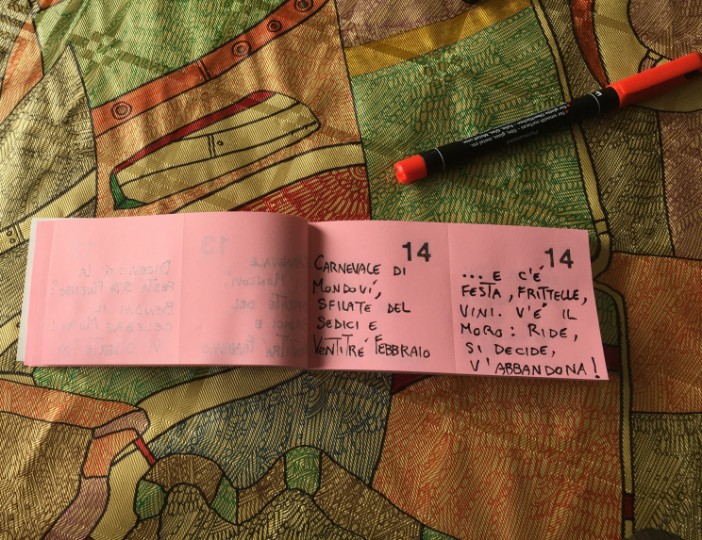 14
CARNEVALE DI
MONDOVÍ,
SFILATE DEL
SEDICI E
VENTITRÉ FEBBRAIO
14
... E C'É
FESTA, FRITTELLE,
VINI. V'É IL
MORO: RIDE,
SI DECIDE,
V'ABBANDONA!